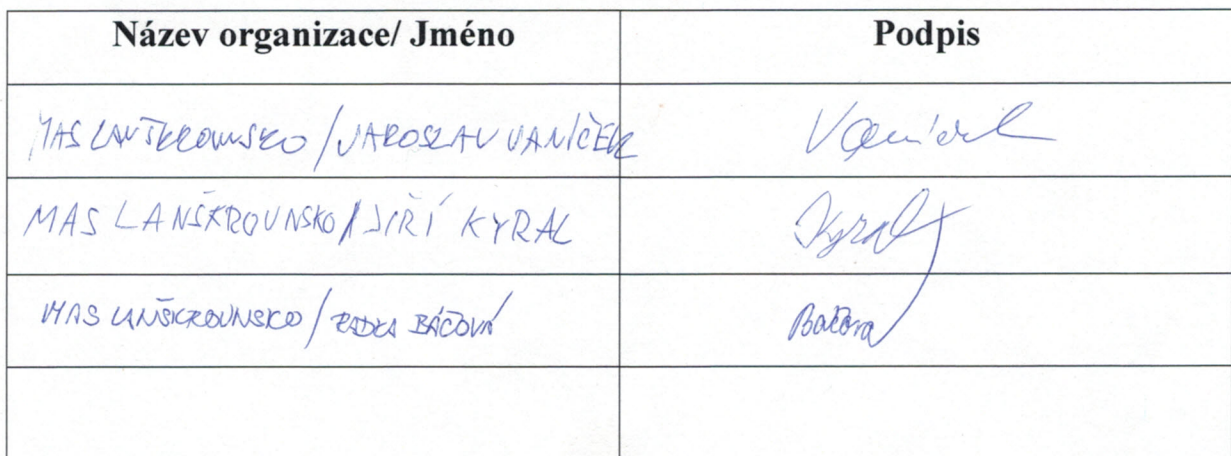 Název organizace/ Jméno Podpis
MAS LANŠKROUNSKO / JAROSLAV VANÍČEK Vaníček
MAS LANŠKROUNSKO / JIŘÍ KYRAL Kyral
MAS LANŠKROUNSKO / RADKA BÁČOVÁ Báčová